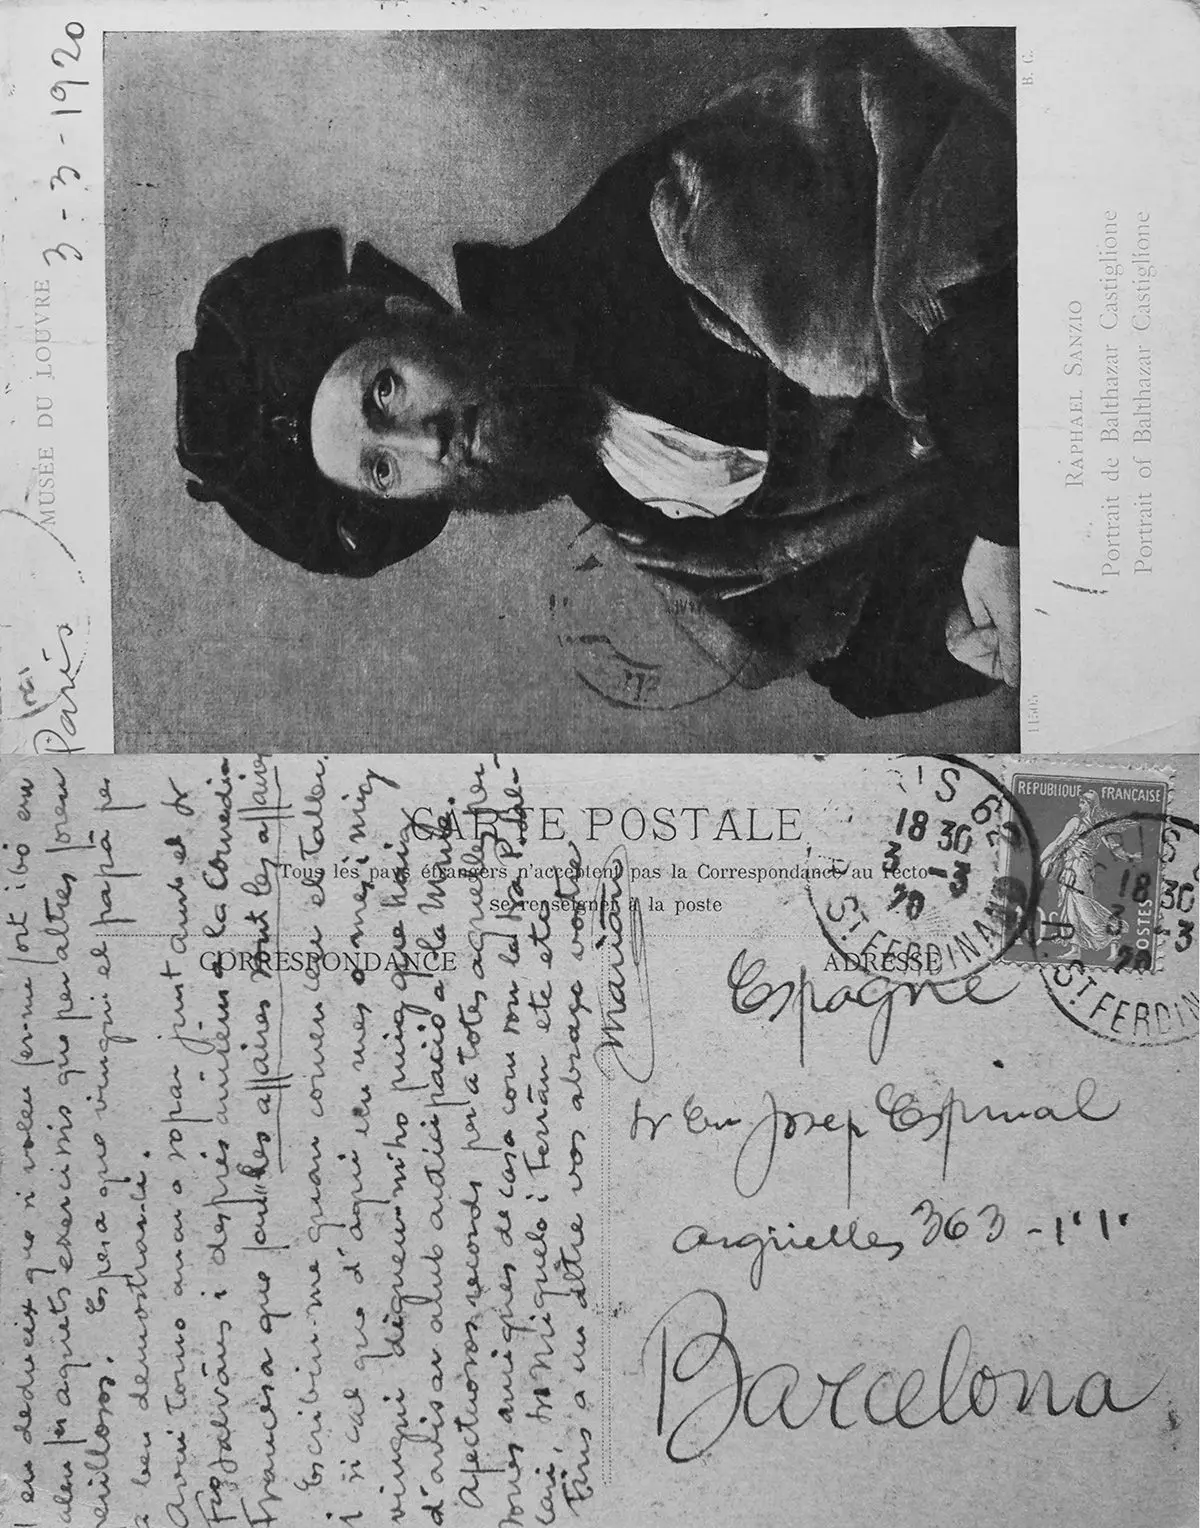 MUSÉE DU LOUVRE
3-3-1920
París
B. C.
RAPHAEL SANZIO
Portrait de Balthazar Castiglione
Portrait of Balthazar Castiglione
11505
CARTE POSTALE
Tous les pays étrangers n'acceptent pas la Correspondance au recto
se renseigner à la poste
CORRESPONDANCE
ADRESSE
REPUBLIQUE FRANÇAISE
POSTES
18 30
3 -3
20
R. ST. FERDINAND
18 30
3 -3
20
R. ST. FERDIN
en dedueix que si volen fer-me sort ibó em
aquets exercisis que per altres
Espera que vingui el papà per
a ben demostrar-li.
Avui torno anar a sopar junt amb el Sr
i després anirem a la Comedia
Francesa que fan "les affaires sont les affaires
Escribiu-me quan comenceu el taller.
i si cal que d'aqui un mes o mes mitg
vingui digueu-m'ho puig que haig
d'avisar amb anticipació a la
Afectuosos recorts per a totes aquelles per-
sones amigues de casa com son la
Sr Miquela i Terán etc etc
Fins a un altre vos abraça vostre
Marián
Espagne
Sr En Josep Espinal
Argüelles 363-1º1ª
Barcelona